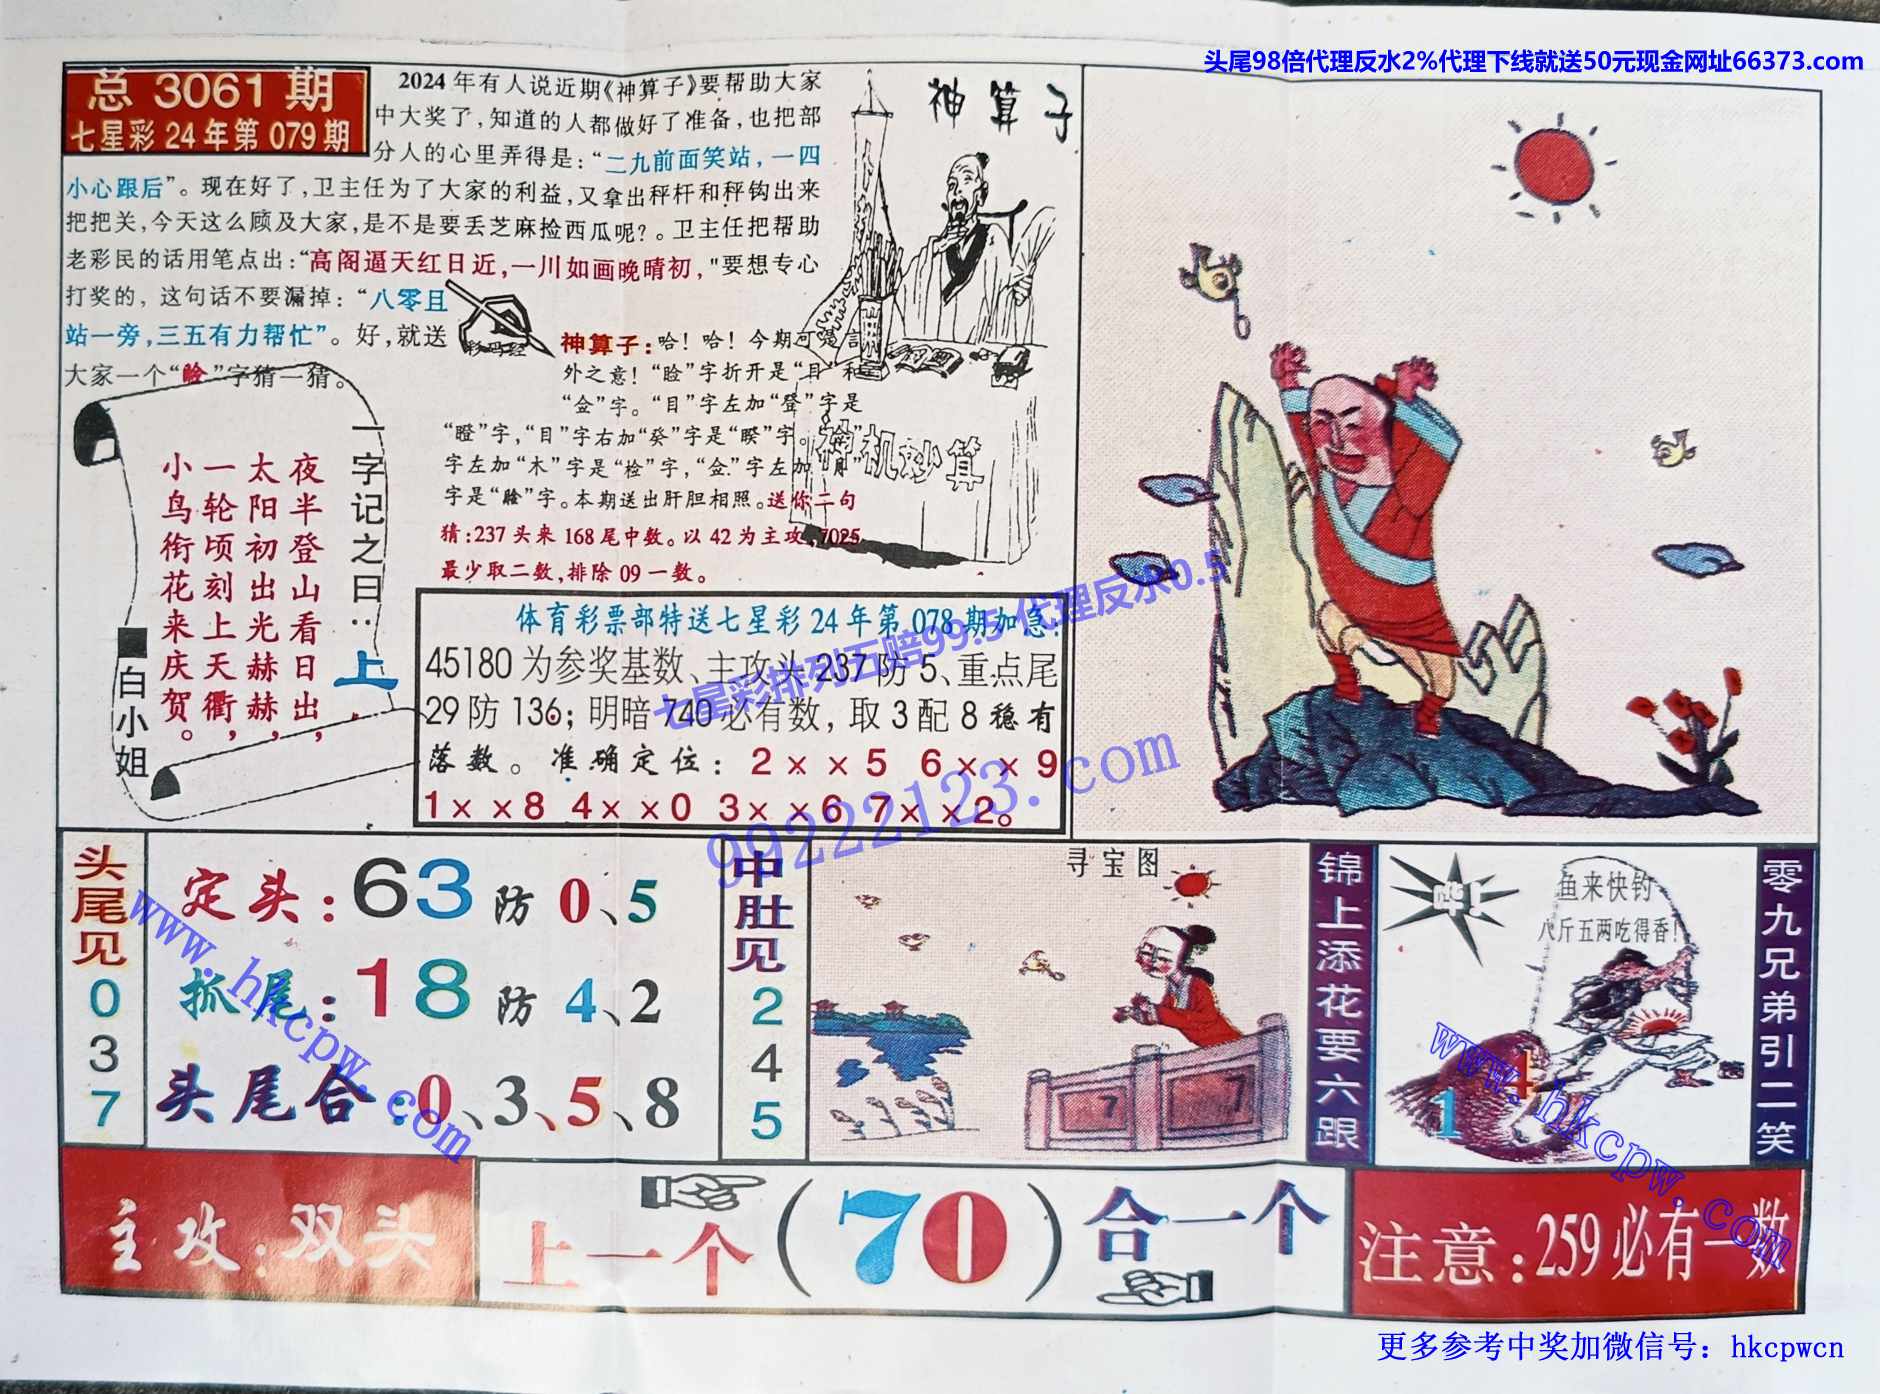 头尾98倍代理反水2%代理下线就送50元现金网址66373.com
总 3061 期
七星彩 24 年第 079 期
2024 年有人说近期《神算子》要帮助大家
中大奖了，知道的人都做好了准备，也把部
分人的心里弄得是：“二九前面笑站，一四
小心跟后”。现在好了，卫主任为了大家的利益，又拿出秤杆和秤钩出来
把把关，今天这么顾及大家，是不是要丢芝麻捡西瓜呢？。卫主任把帮助
老彩民的话用笔点出：“高阁逼天红日近，一川如画晚晴初，"要想专心
打奖的，这句话不要漏掉：“八零且
站一旁，三五有力帮忙”。好，就送
大家一个“睑”字猜一猜。
彩码经
神算子
神机妙算
神算子：哈！哈！今期可是言
外之意！“睑”字折开是“目”和
“佥”字。“目”字左加“登”字是
“瞪”字，“目”字右加“癸”字是“睽”字。
字左加“木”字是“检”字，“佥”字左加“月”
字是“脸”字。本期送出肝胆相照。送你二句
猜：237 头来 168 尾中数。以 42 为主攻，7025
最少取二数，排除 09 一数。
一字记之曰：上
夜半登山看日出，
太阳初出光赫赫，
一轮顷刻上天衢，
小鸟衔花来庆贺。
白小姐
体育彩票部特送七星彩 24 年第 078 期加急！
45180 为参奖基数、主攻头 237 防 5、重点尾
29 防 136；明暗 740 必有数，取 3 配 8 稳有
落数。准确定位：2××5 6××9
1××8 4××0 3××6 7××2。
七星彩排列五赔99.5 代理反水0.5
99222123.com
头尾见
0
3
7
定头：63 防 0、5
抓尾：18 防 4、2
头尾合：0、3、5、8
www.hkcpw.com
中肚见
2
4
5
寻宝图
7
7
锦上添花要六跟
哗！
鱼来快钓
八斤五两吃得香！
1
4
www.hkcpw.com
零九兄弟引二笑
主攻：双头
上一个（70）合一个
注意：259 必有一数
更多参考中奖加微信号：hkcpwcn